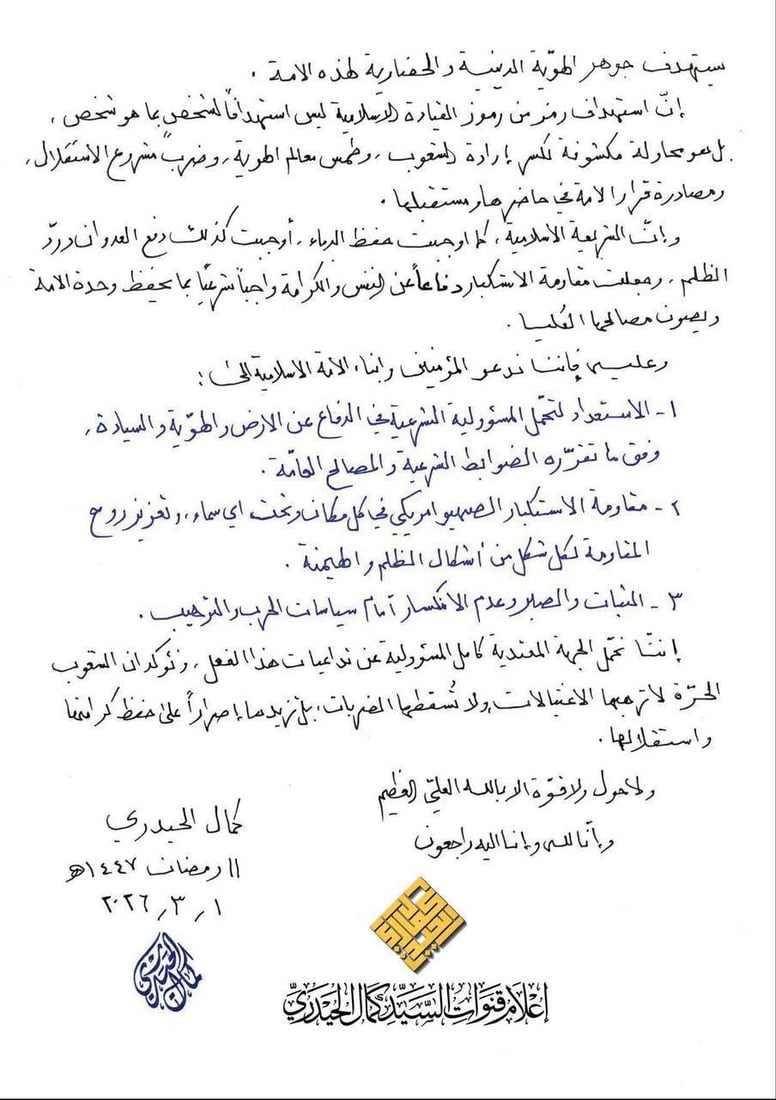 يستهدف جوهر الهويّة الدينية والحضارية لهذه الامة .
إنّ استهداف رمز من رموز القيادة الاسلامية ليس استهدافاً لشخص بما هو شخص ،
بل هو محاولة مكشوفة لكسر إرادة الشعوب ، وطمس معالم الهوية ، وضربٌ لمشروع الاستقلال ،
ومصادرة قرار الامة في حاضرها ومستقبلها .
وإنّ الشريعة الاسلامية ، كما اوجبت حفظ الدماء ، أوجبت كذلك دفع العدوان وردّ
الظلم ، وجعلت مقاومة الاستكبار دفاعاً عن النفس والكرامة واجباً شرعيّاً بما يحفظ وحدة الامة
ويصون مصالحها العُليا .
وعليه فإننا ندعو المؤمنين وابناء الامة الاسلامية الى :
١ - الاستعداد لتحمّل المسؤولية الشرعية في الدفاع عن الارض والهوّية والسيادة ،
وفق ما تقرّره الضوابط الشرعية والمصالح العامّة .
٢ - مقاومة الاستكبار الصهيوامريكي في كل مكان وتحت اي سماء ، وتعزيز روح
المقاومة لكل شكل من أشكال الظلم والهيمنة .
٣ - الثبات والصبر وعدم الانكسار أمام سياسات الحرب والترهيب .
إننّا نحمّل الجهة المعتدية كامل المسؤولية عن تداعيات هذا الفعل ، ونؤكد ان الشعوب
الحرّة لا ترهبها الاغتيالات ولا تُسقطها الضربات ، بل تزيدها إصراراً على حفظ كرامتها
واستقلالها .
ولا حول ولا قوّة الا بالله العليّ العظيم
وإنّا لله وإنا اليه راجعون
كمال الحيدري
١١ رمضان ١٤٤٧هـ
١ / ٣ / ٢٠٢٦
كمال الحيدري
إعلام قنوات السيّد كمال الحيدري